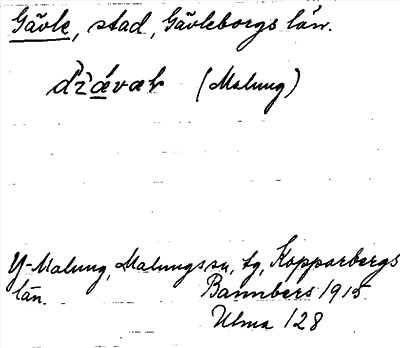 Gävle, stad, Gävleborgs län.
(Malung)
Y-Malung, Malungs sn, tg, Kopparbergs
län. Bannbers 1915
Ulma 128